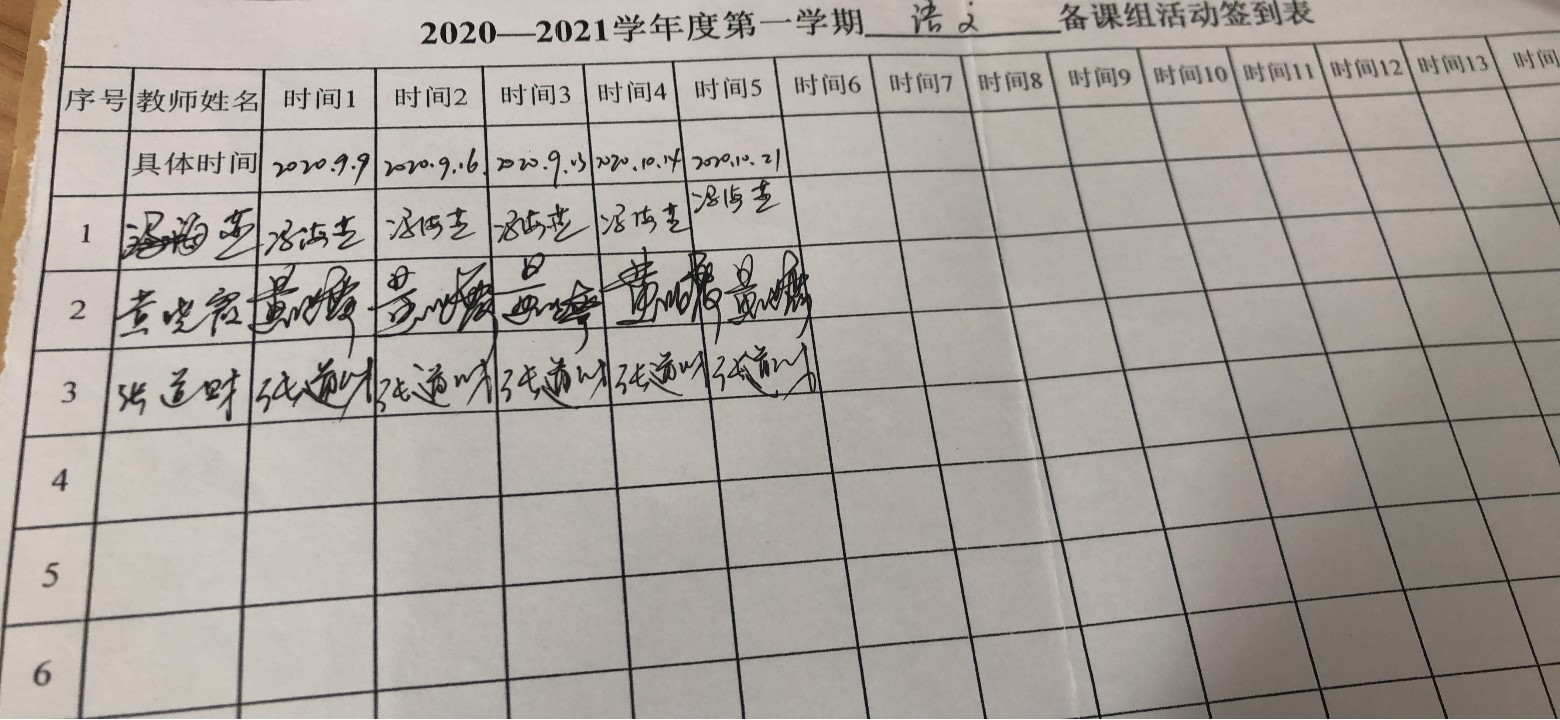 2020—2021学年度第一学期 语文 备课组活动签到表
序号 教师姓名 时间1 时间2 时间3 时间4 时间5 时间6 时间7 时间8 时间9 时间10 时间11 时间12 时间13 时间
具体时间 2020.9.9 2020.9.16 2020.9. 2020.10.14 2020.10.21
1 冯海 冯海 冯海 冯海 冯海 冯海
2 黄晓霞 黄晓霞 黄晓霞 黄晓霞 黄晓霞 黄晓霞
3 张道财 张道财 张道财 张道财 张道财 张道财
4
5
6